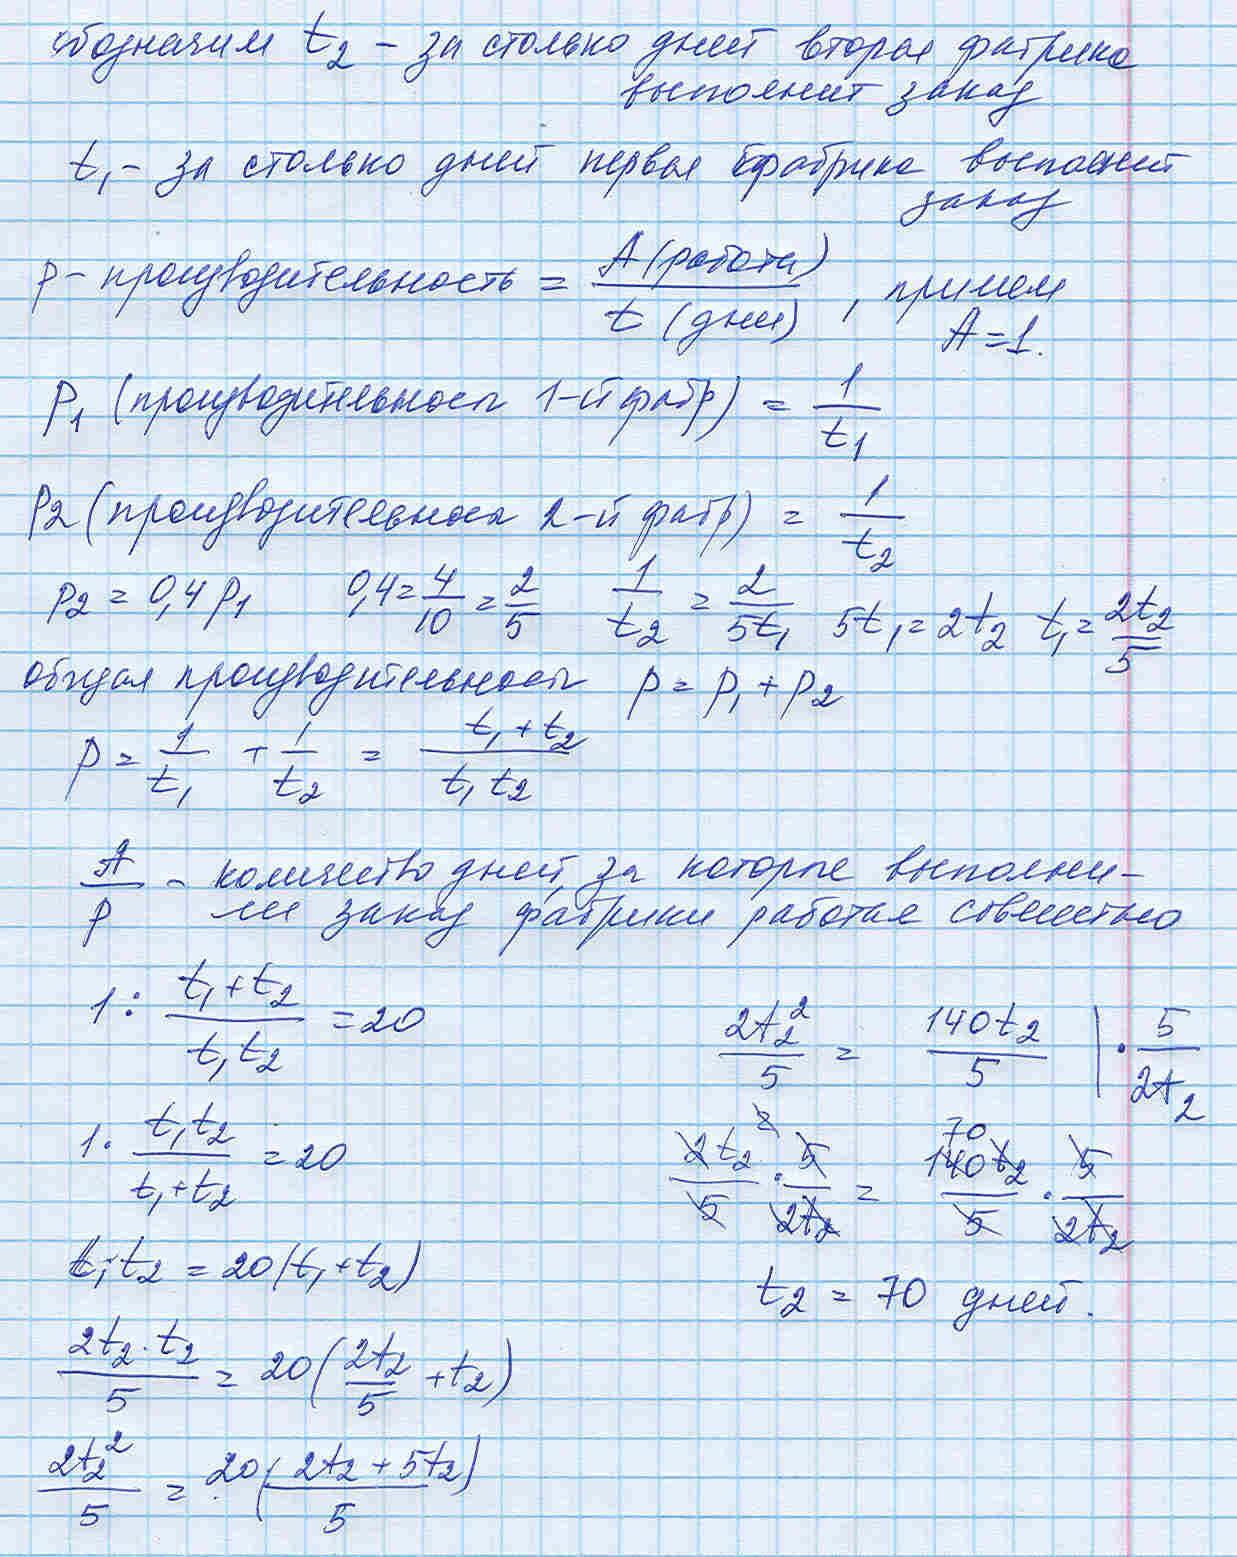 обозначим t₂ – за столько дней вторая фабрика
выполнит заказ
t₁ – за столько дней первая фабрика выполнит
заказ
p – производительность = A (работа) / t (дни) , примем
A = 1.
P₁ (производительность 1-й фабр) = 1/t₁
P₂ (производительность 2-й фабр) = 1/t₂
p₂ = 0,4 p₁   0,4 = 4/10 = 2/5   1/t₂ = 2/5t₁   5t₁ = 2t₂   t₁ = 2t₂/5
общая производительность p = p₁ + p₂
p = 1/t₁ + 1/t₂ = t₁ + t₂ / t₁ t₂
A/p – количество дней, за которые выполни-
ли заказ фабрики работая совместно
1 : t₁ + t₂ / t₁ t₂ = 20
1 · t₁ t₂ / t₁ + t₂ = 20
t₁ · t₂ = 20 (t₁ + t₂)
2t₂ · t₂ / 5 = 20 (2t₂/5 + t₂)
2t₂²/5 = 20 (2t₂ + 5t₂) / 5
2t₂²/5 = 140t₂/5 | · 5/2t₂
2t₂²/5 · 5/2t₂ = 70 140t₂/5 · 5/2t₂
t₂ = 70 дней.